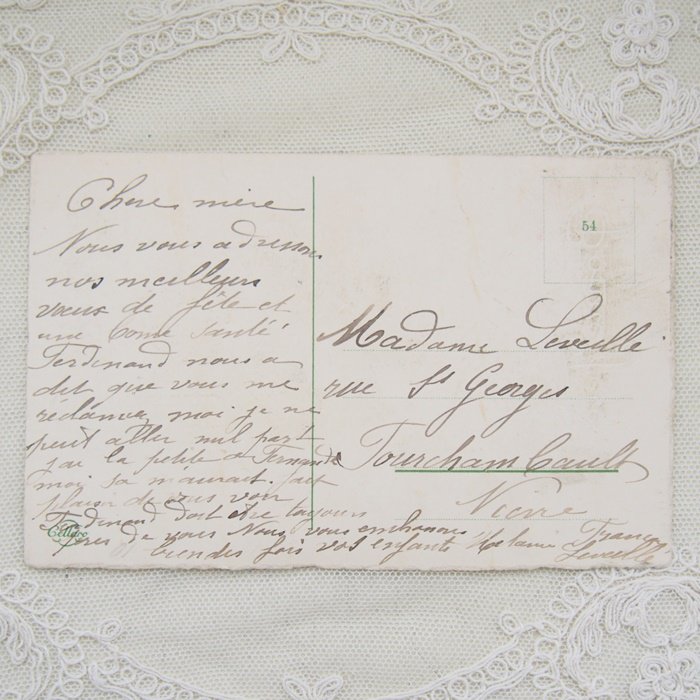 Chere mère
Nous vous adressons
nos meilleurs
vœux de fête et
une bone santé
Ferdinand nous a
dit que vous me
reclamer moi je ne
peut aller nul part
j'ai la petite a Fernande
moi sa maurait fait
plaisir de vous voir
Ferdinand doit etre toujours
pres de vous Nous vous embrassons
bien des fois vos enfants
Leveille
54
Madame Leveille
rue St Georges
Tourcham Cault
Nievre
Cellaro